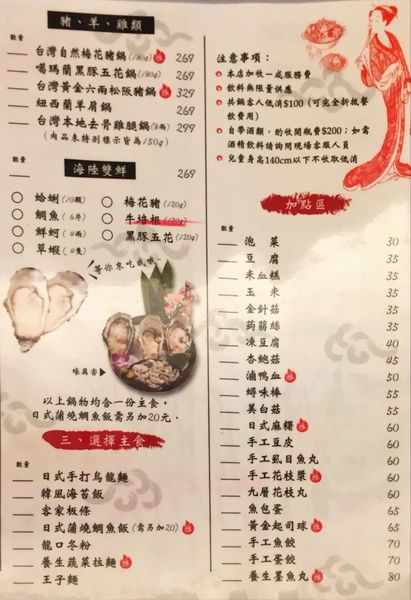 豬、羊、雞類
數量
台灣自然梅花豬鍋(180g) 推 269
噶瑪蘭黑豚五花鍋(180g) 269
台灣黃金六兩松阪豬鍋 推 329
紐西蘭羊肩鍋 269
台灣本地去骨雞腿鍋(8兩) 299
(肉品未特別標示皆為150g)
海陸雙鮮 269
數量
蛤蜊(10顆)
梅花豬(120g)
鯛魚(6片)
牛培根(120g)
鮮蚵(4兩)
黑豚五花(120g)
草蝦(4隻)
等你來吃我哦
以上鍋物均含一份主食,
日式蒲燒鯛魚飯需另加20元。
三、選擇主食
數量
日式手打烏龍麵
韓風海苔飯
客家板條
日式蒲燒鯛魚飯(需另加20) 推
龍口冬粉
養生蔬菜拉麵 推
王子麵
注意事項:
本店加收一成服務費
飲料無限量供應
共鍋客人低消$100(可完全折抵餐飲費用)
自帶酒類,酌收開瓶費$200;如需酒精飲料請詢問現場客服人員
兒童身高140cm以下不收取低消
加點區
數量
泡菜 30
豆腐 35
米血糕 35
玉米 35
金針菇 35
蒟蒻絲 35
凍豆腐 40
杏鮑菇 45
滷鴨血 推 50
蟳味棒 55
美白菇 55
日式麻糬 推 60
手工豆皮 60
手工虱目魚丸 60
手工花枝漿 推 60
九層花枝丸 60
魚包蛋 65
黃金起司球 推 65
手工魚餃 70
手工蛋餃 70
養生墨魚丸 推 80